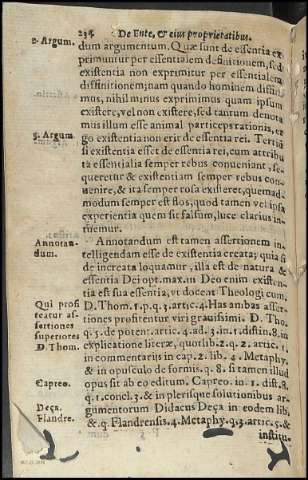 234 De Ente, & eius proprietatibus.
2. Argum.
dum argumentum. Quæ sunt de essentia ex
primuntur per essentialem definitionem, sed
existentia non exprimitur per essentialem
diffinitionem; nam quando hominem diffini
mus, nihil minus exprimimus quam ipsum
existere, vel non existere, sed tantum denota
mus illum esse animal particeps rationis, er
go existentia non erit de essentia rei. Tertiũ
3. Argum.
si existentia esset de essentia rei, cum attribu
ta essentialia semper rebus conueniant, se-
queretur & existentiam semper rebus con-
uenire, & ita semper rosa existeret, quemad-
modum semper est flos, quod tamen vel ipsa
experientia quem sit falsum, luce clarius in
tuemur.
Annotan-
dum.
Annotandum est tamen assertionem in-
telligendam esse de existentia creata; quia si
de increata loquamur, illa est de natura &
essentia Dei opt. max. in Deo enim existen-
tia est sua essentia, vt docent Theologi cum
Qui profi
teatur as-
sertiones
superiores
D. Thom.
D. Thom. 1. p. q. 3. artic. 4. Has ambas asser-
tiones profitentur viri grauissimi. D. Tho.
q. 5. de potent. artic. 4. ad. 3. in 1. distin. 8. in
explicatione literæ, quotlib. 2. q. 2. artic. 1.
in commentarijs in cap. 2. lib. 4. Metaphy.
& in opusculo de formis. q. 8. si tamen illud
opus sit ab eo editum. Capreo. in 1. dist. 8.
Capreo.
q. 1. concl. 3. & in plerisque solutionibus ar-
Deça.
gumentorum Didacus Deça in eodem lib.
Flandre.
& q. Flandrensis. 4. Metaphy. q. 3. artic. 5. &
institu.